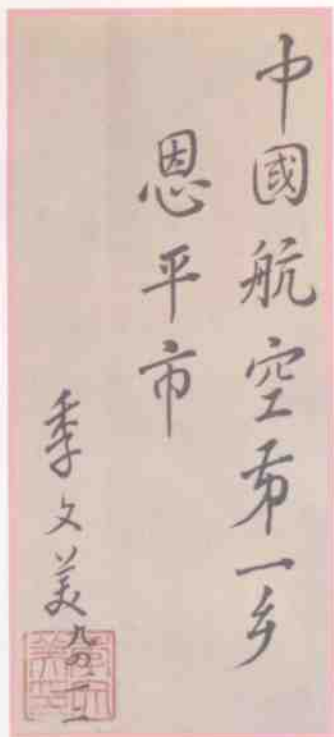 中國航空第一乡
恩平市
季文美